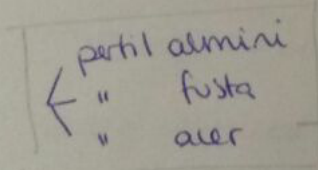 perfil almini
" fusta
" acer